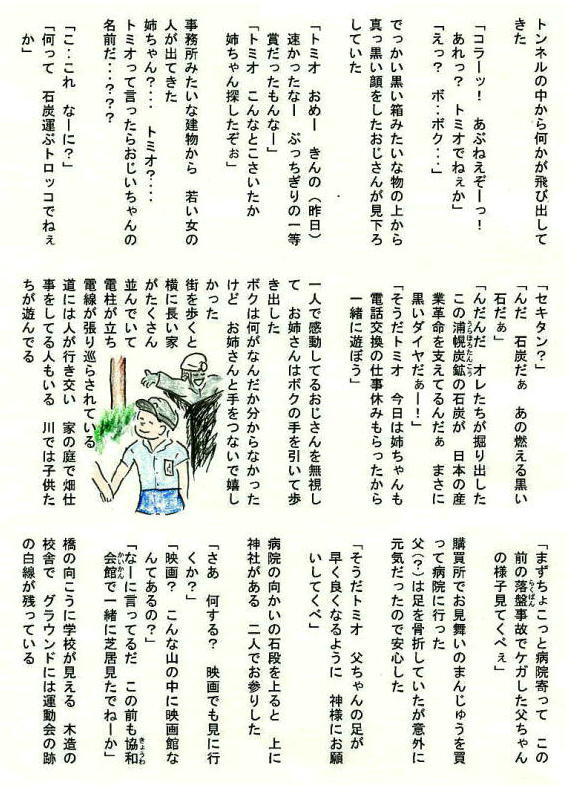 トンネルの中から何かが飛び出して
きた
「コラーッ! あぶねえぞーっ!
あれっ? トミオでねぇか」
「えっ? ボ・・ボク・・・」
でっかい黒い箱みたいな物の上から
真っ黒い顔をしたおじさんが見下ろ
していた
「トミオ おめー きんの(昨日)
速かったなー ぶっちぎりの一等
賞だったもんなー」
「トミオ こんなとこさいたか
姉ちゃん探したぞぉ」
事務所みたいな建物から 若い女の
人が出てきた
姉ちゃん?・・・ トミオ?・・・・
トミオって言ったらおじいちゃんの
名前だ・・・???
「こ・・これ なーに?」
「何って 石炭運ぶトロッコでねぇ
か」
「セキタン?」
「んだ 石炭だぁ あの燃える黒い
石だぁ」
「んだんだ オレたちが掘り出した
この浦幌炭鉱の石炭が 日本の産
うらほろたんこう
業革命を支えてるんだぁ まさに
黒いダイヤだぁー!」
「そうだトミオ 今日は姉ちゃんも
電話交換の仕事休みもらったから
一緒に遊ぼう」
一人で感動してるおじさんを無視し
て お姉さんはボクの手を引いて歩
き出した
ボクは何がなんだか分からなかった
けど お姉さんと手をつないで嬉し
かった
街を歩くと
横に長い家
がたくさん
並んでいて
電柱が立ち
電線が張り巡らされている
道には人が行き交い 家の庭で畑仕
事をしてる人もいる 川では子供た
ちが遊んでる
「まずちょこっと病院寄って この
前の落盤事故でケガした父ちゃん
らくばん
の様子見てくべぇ」
購買所でお見舞いのまんじゅうを買
って病院に行った
父(?)は足を骨折していたが意外に
元気だったので安心した
「そうだトミオ 父ちゃんの足が
早く良くなるように 神様にお願
いしてくべ」
病院の向かいの石段を上ると 上に
神社がある 二人でお参りした
「さあ 何する? 映画でも見に行
くか?」
「映画? こんな山の中に映画館な
んてあるの?」
「なーに言ってるだ この前も協和
きょうわ
会館で一緒に芝居見たでねーか」
かいかん
橋の向こうに学校が見える 木造の
校舎で グラウンドには運動会の跡
の白線が残っている